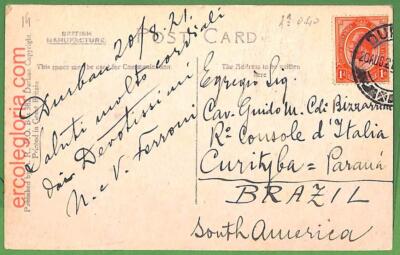 19
BRITISH
MANUFACTURE
POST CARD
This space may be used for Communication.
The Address to be written here.
Durban 20/8.21.
Saluti molto cordiali
dai Devotissimi
N. e V. Ferroni
Egregio Sig.
Cav. Guido M. Cdi Bizzarrini
Ro Console d'Italia
Curityba = Paraná
BRAZIL
South America
DUR
20 AUG 21
1D
1D
ercolegloria.com
Printed in Great Britain